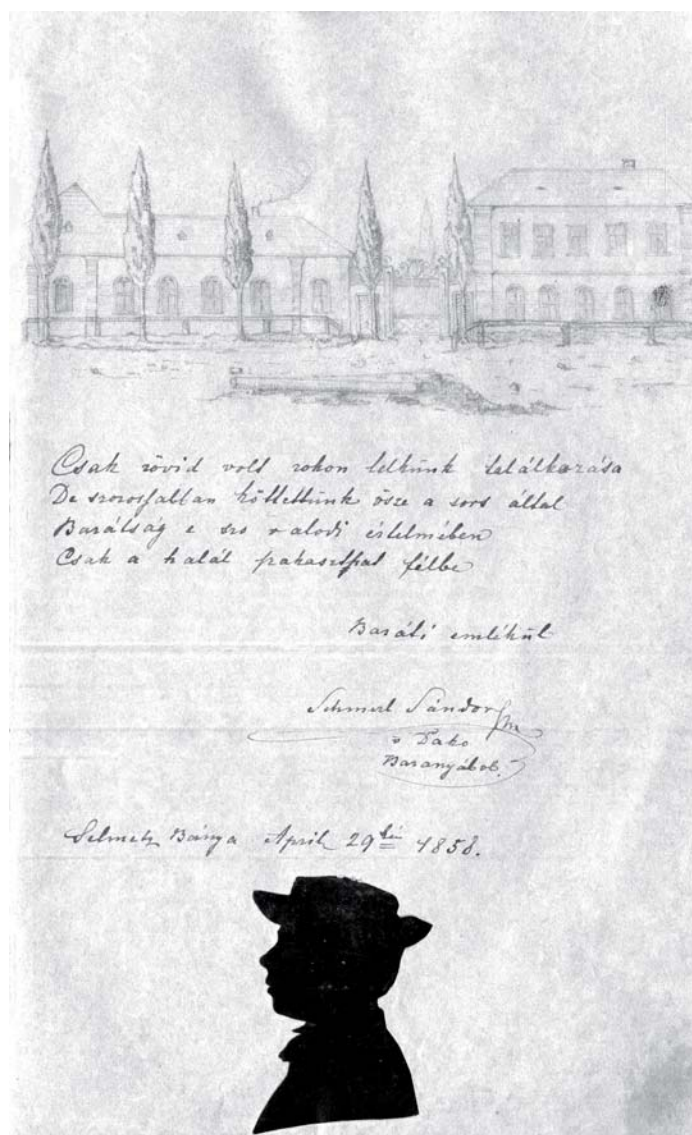 Csak rövid volt rokon lelkünk találkozása
De szorosfabban köttettünk ösze a sors által
Barátság e szo valodi értelmében
Csak a halál
félbe
Baráti emlékül
Schmerl Sándor
Baranyábol.
Selmetz Bánya April 29 kén 1858.